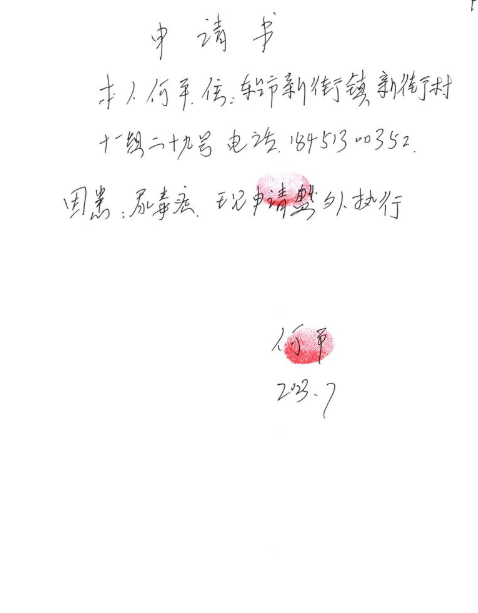 申请书
本人何平.住:东台市新街镇新街村
十一组二十九号电话.18451300352.
因患:尿毒症.现申请监外执行
何平
2023.7